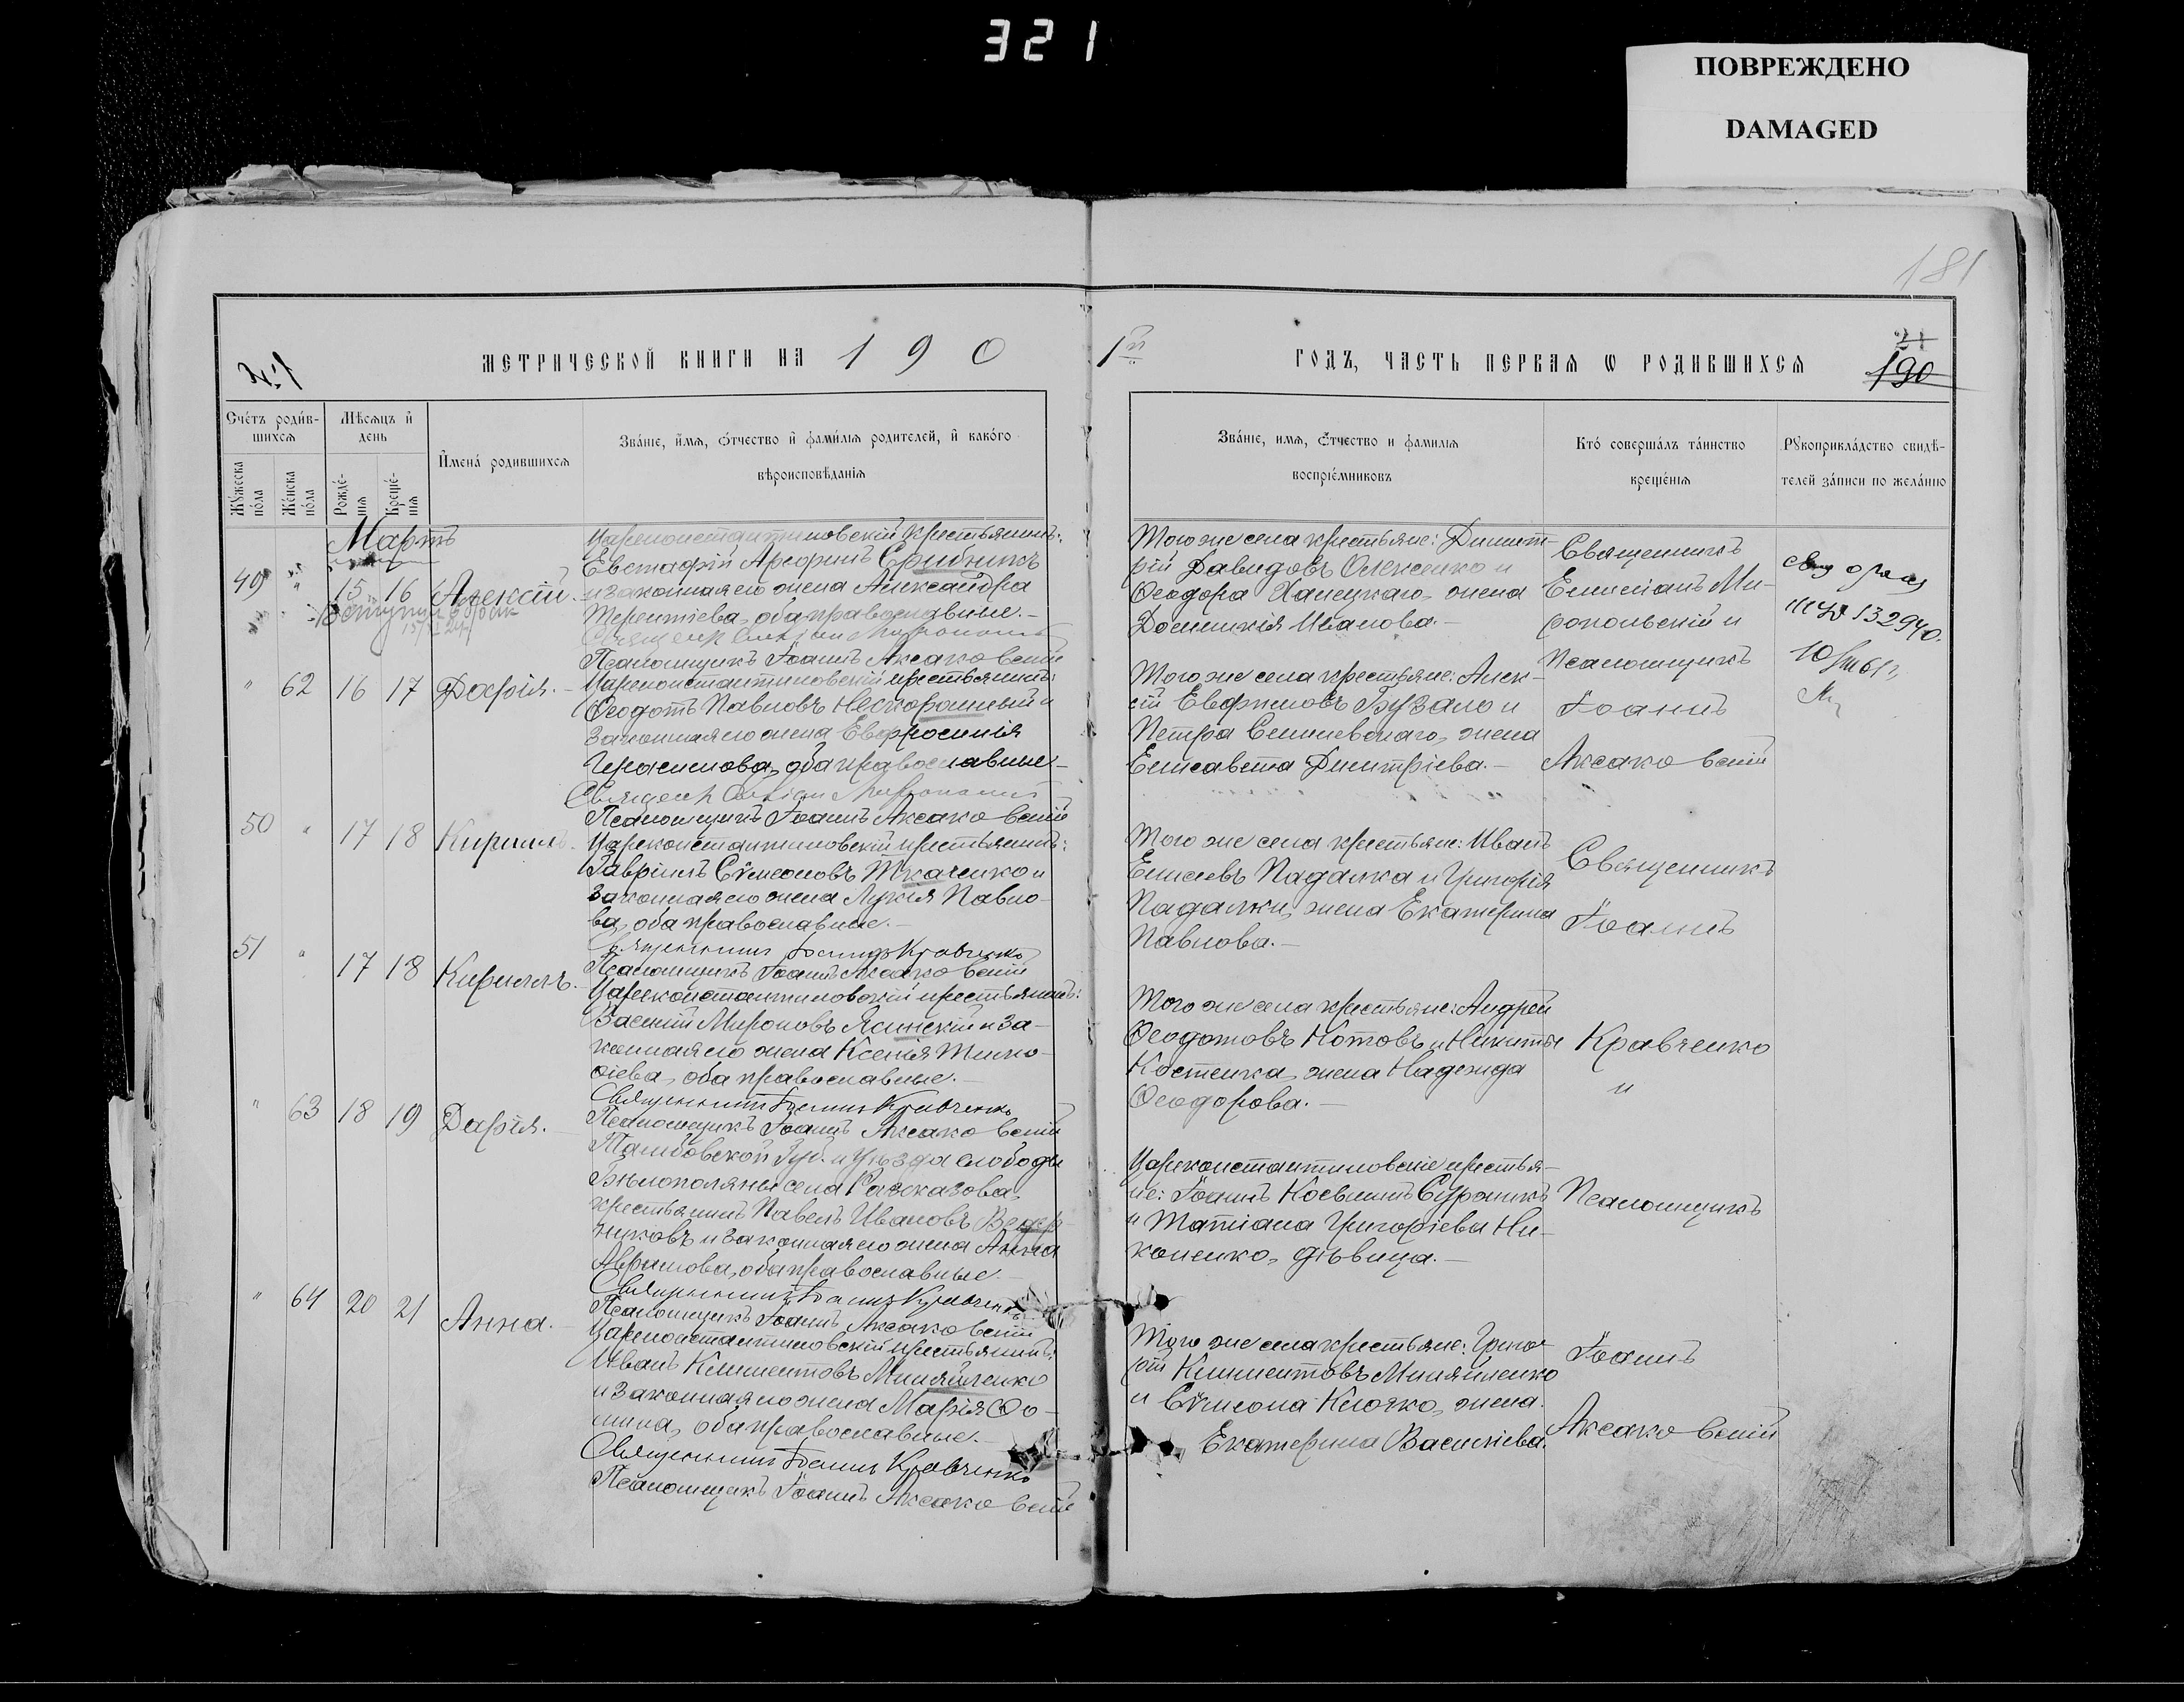 321
ПОВРЕЖДЕНО
DAMAGED
181
№1
МЕТРИЧЕСКОЙ КНИГИ НА 190
1й ГОДЪ, ЧАСТЬ ПЕРВАЯ Ѡ РОДИВШИХСЯ
21
190
Счéтъ родúв-
шихся
Мѣсяцъ и
день
Мꙋжеска
пóла
Жéнска
пóла
Рождé-
нія
Крещé-
нія
Именá родившихся
Звáніе, имя, óтчество и фамилія родителей, и какóго
вѣроисповѣданія
Звáніе, имя, óтчество и фамилія
воспріéмниковъ
Ктó совершáлъ тáинство
крещéнія
Рꙋкоприклáдство свидѣ-
телей зáписи по желáнію
Мартъ
49 " 15 16 Алексій.
Цареконстантиновскій крестьянинъ:
Евстафій Арефинъ Сришникъ
и законная его жена Александра
Терентіева, оба православные.-
Псаломщикъ Іоаннъ Аксаковскій
Того же села крестьяне: Димит-
рій Давидовъ Олексенко и
Ѳеодора Ханецкаго, жена
Домникія Иванова.-
Священникъ
Емиліанъ Ми-
ропольскій и
Псаломщикъ
Іоаннъ
Аксаковскій
132940.
" 62 16 17 Дарія.-
Цареконстантиновскій крестьянинъ:
Ѳеодотъ Павловъ Нескоромный и
законная его жена Евфросинія
Герасимова, оба православные-
Псаломщикъ Іоаннъ Аксаковскій
Того же села крестьяне: Алек-
сій Евфимовъ Бузало и
Петра Синиевскаго, жена
Елисавета Димитріева.-
50 " 17 18 Кириллъ.
Цареконстантиновскій крестьянинъ:
Гавріилъ Сѵмеоновъ Ткаченко и
законная его жена Лукія Павло-
ва, оба православные.-
Священникъ Іоаннъ Кравченко
Псаломщикъ Іоаннъ Аксаковскій
Того же села крестьяне: Иванъ
Елисеевъ Падалка и Григорія
Падалки, жена Екатерина
Павлова.-
Священникъ
Іоаннъ
51 " 17 18 Кириллъ.
Цареконстантиновскій крестьянинъ:
Василій Мироновъ Ясинскій и за-
конная его жена Ксенія Тимо-
ѳіева, оба православные.-
Священникъ Іоаннъ Кравченко
Псаломщикъ Іоаннъ Аксаковскій
Того же села крестьяне: Андрей
Ѳеодотовъ Котовъ и Никиты
Костенка, жена Надежда
Ѳеодорова.-
Кравченко
и
" 63 18 19 Дарія.-
Тамбовской Губ. и уѣзда слободы
Бѣлополянья села Разсказова,
крестьянинъ Павелъ Ивановъ Ведер-
никовъ и законная его жена Анна
Аврамова, оба православные.-
Священникъ Іоаннъ Кравченко
Псаломщикъ Іоаннъ Аксаковскій
Цареконстантиновскіе крестья-
не: Іоаннъ Косьминъ Супрникъ
и Татіана Григоріева Ни-
коненко, дѣвица.-
Псаломщикъ
" 64 20 21 Анна.-
Цареконстантиновскій крестьянинъ:
Иванъ Климентовъ Миняйленко
и законная его жена Марія Ѳо-
мина, оба православные.-
Священникъ Іоаннъ Кравченко
Псаломщикъ Іоаннъ Аксаковскій
Того же села крестьяне: Григо-
рій Климентовъ Миняйленко
и Сѵмеона Клочко, жена
Екатерина Василіева.
Іоаннъ
Аксаковскій